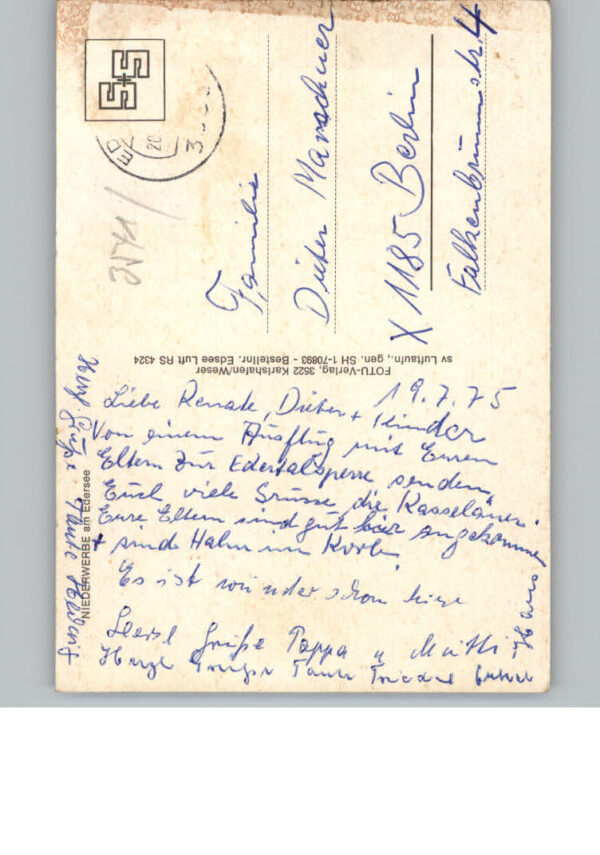 Familie
Dieter Marschner
X 1185 Berlin
Falkenbrunnstr. 4
3541/
ED
20
FOTU-Verlag, 3522 Karlshafen/Weser
sv Luftaufn., gen. SH 1-70893 - Bestellnr. Edsee Luft RS 4324
NIEDERWERBE am Edersee
19.7.75
Liebe Renate, Dieter + Kinder
Von einem Ausflug mit Euren
Eltern zur Edertalsperre senden
Euch viele Grüsse die Kasselaner.
Eure Eltern sind gut hier angekommen
+ sind Hahn im Korb.
Es ist wunderschön hier
Herzl Grüße Pappa u Mutti
Herzl Tante
Hans
Herzl. Grüße Tante Hedwig